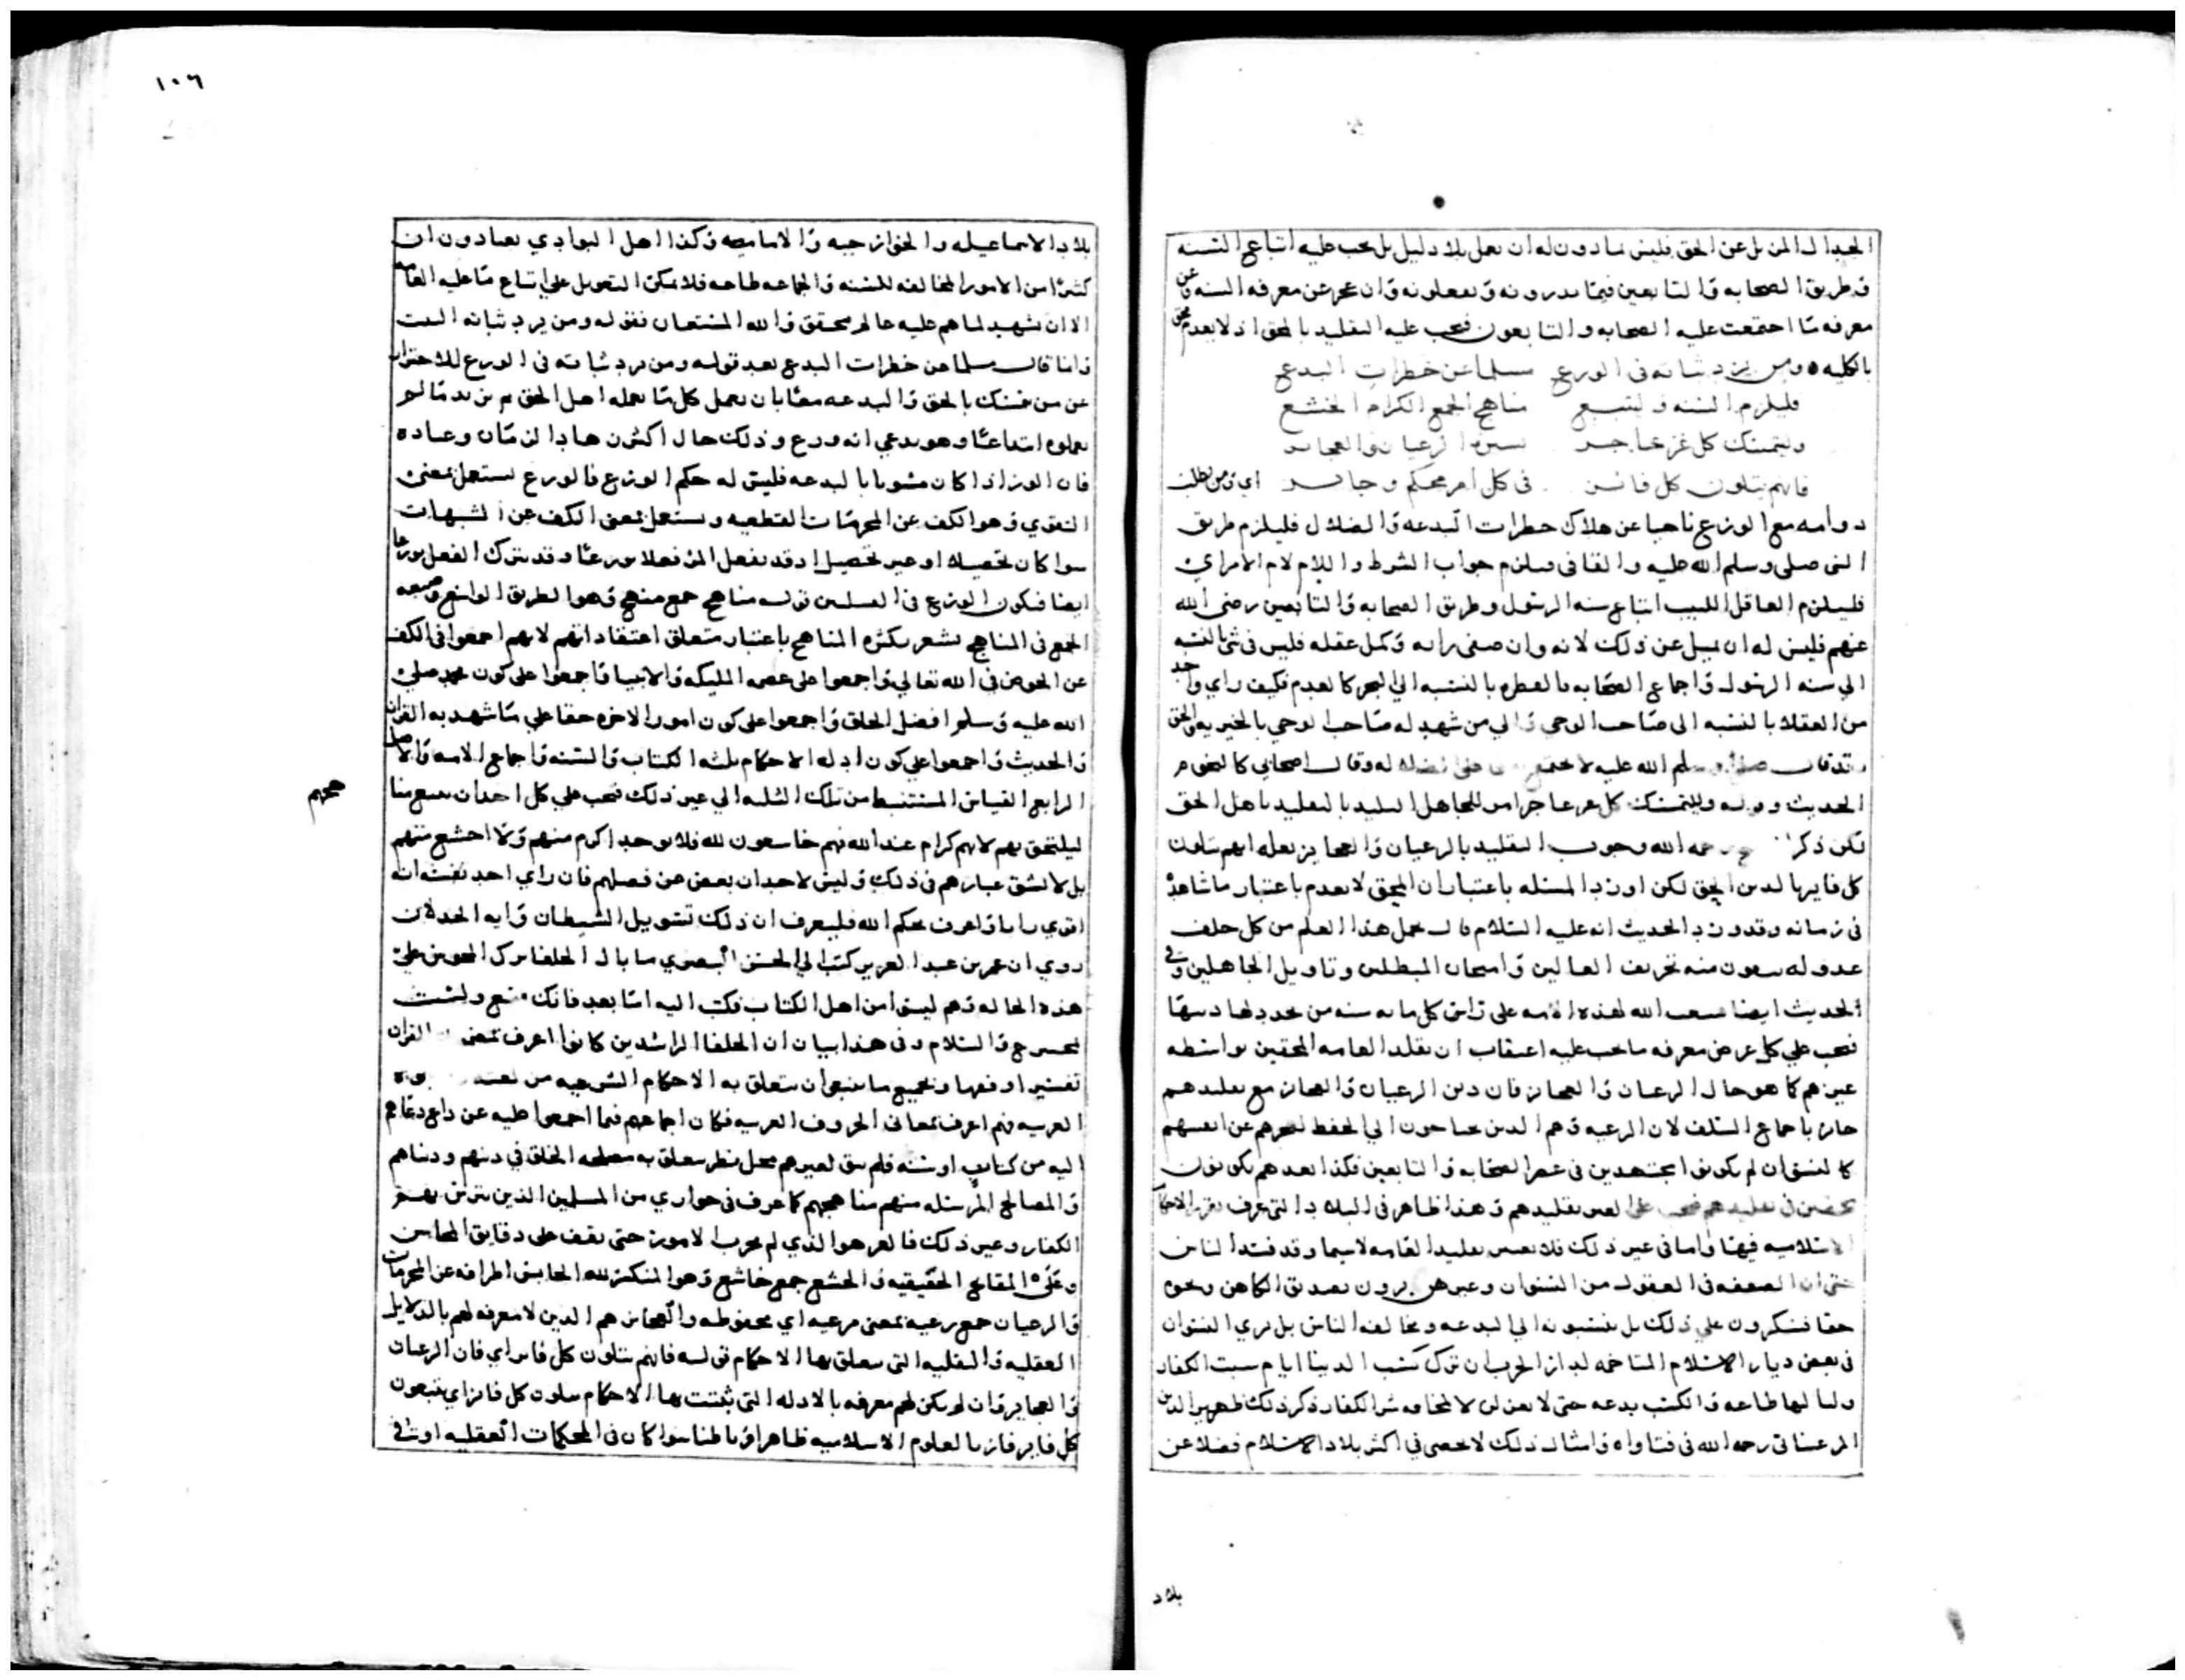 الجدال المزيل عن الحق فليس بمادون له ان يعمل بلا دليل بل يجب عليه اتباع السنه
وطريق الصحابه والتابعين فيما يدرونه ويفعلونه وان عجز عن معرفه السنه وعن
معرفه ما اجتمعت عليه الصحابه والتابعون فيجب عليه التقليد بالمحق اذ لا يعدم محق
بالكليه ومن يرد ثباته في الورع مسلما عن خطرات البدع
فليلزم السنه وليتبع مناهج الجمع الكرام الخشع
وليتمسك كل غر عاجز بسيره الرعيان والعجائز
فانهم يتلون كل فائز في كل امر محكم وجائز اي ومن يطلب
دوامه مع الورع ناجيا عن هلاك خطرات البدعه والضلال فليلزم طريق
النبي صلى وسلم الله عليه والفا في فليلزم جواب الشرط واللام لام الامر اي
فليلزم العاقل اللبيب اتباع سنه الرسول وطريق الصحابه والتابعين رضي الله
عنهم فليس له ان يميل عن ذلك لانه وان صفى رايه وكمل عقله فليس في شي بالنسبه
الي سنه الرسول واجماع الصحابه كالقطره بالنسبه الي البحر كالعدم فكيف راي واحد
من العقلا بالنسبه الى صاحب الوحي والي من شهد له صاحب الوحي بالخيريه والحق
وقد قال صلى وسلم الله عليه لا تجتمع على الضلاله وقال اصحابي كالنجوم
الحديث وقوله وليتمسك كل غر عاجز امر للجاهل البليد بالتقليد باهل الحق
لكن ذكر رحمه الله وجوب التقليد بالرعيان والعجايز بعله انهم يتلون
كل فايز بها لدين الحق لكن اورد المسئله باعتبار ان المحق لا يعدم باعتبار ما شاهد
في زمانه وقد ورد الحديث انه عليه السلام قال يحمل هذا العلم من كل خلف
عدوله ينفون منه تحريف الغالين وانتحال المبطلين وتاويل الجاهلين وفي
الحديث ايضا يبعث الله لهذه الامه على راس كل مايه سنه من يجدد لها دينها
فيجب علي كل عن معرفه ما يجب عليه اعتقاب ان يقلد العامه المحقين بواسطه
غيرهم كما هو حال الرعيان والعجائز فان دين الرعيان والعجائز مع تقليدهم
جائز باجماع السلف لان الرعيه وهم الذين يحتاجون الي الحفظ لعجزهم عن انفسهم
كالنسوان لم يكونوا مجتهدين في عصر الصحابه والتابعين فكذا بعدهم يكونون
محقين في تقليدهم فيجب على الغير تقليدهم وهذا ظاهر في البلاد التي عرف الاحكام
الاسلاميه فيها واما في غير ذلك فلا تقليد العامه لاسيما وقد فسد الناس
حتى ان الضعفه في العقول من النسوان وغيرهن يرون تصديق الكاهن ونحوه
حقا فينكرون علي ذلك بل ينسبونه الي البدعه ومخالفه الناس بل نري النسوان
في بعض ديار الاسلام المتاخمه لدار الحرب ان ترك كسب الدنيا ايام سبت الكفار
ولياليها طاعه والكسب بدعه حتى شر الكفار ذكر ذلك ظهير الدين
المرغيناني رحمه الله في فتاواه وامثال ذلك لا يحصي في اكثر بلاد الاسلام فضلا عن
بلاد
١٠٦
بلاد الاسماعيليه والخوارجيه والاماميه وكذا اهل البوادي يعتادون ان
كثيرا من الامور المخالفه للسنه والجماعه طاعه فلا يمكن التعويل علي اتباع ما عليه العامه
الا ان يشهد لما هم عليه عالم محقق والله المستعان فقوله ومن يرد ثباته البيت
وانما قال مسلما عن خطرات البدع بعد قوله ومن يرد ثباته في الورع للاحتراز
عن من تمسك بالحق والبدعه معا بان يعمل كل ما يعمله اهل الحق ثم يزيد ما لم
يعملوه ابتداعا وهو يدعي انه ورع وذلك حال اكثر زهاد الزمان وعباده
فان الورع اذا كان مشوبا بالبدعه فليس له حكم الورع فالورع يستعمل بمعنى
التقوي وهو الكف عن المحرمات القطعيه ويستعمل بمعنى الكف عن الشبهات
سوا كان تحصيلا او غير تحصيل اذ قد يفعل المرء فعلا تورعا وقد يترك الفعل تورعا
ايضا فيكون الورع في الفعلين قوله مناهج جمع منهج وهو الطريق الواضع وصيغه
الجمع في المناهج يشعر بكثره المناهج باعتبار متعلق اعتقاداتهم لانهم اجمعوا في الكف
عن الخوض في الله تعالي واجمعوا على عصمه المليكه والانبيا واجمعوا على كون محمد صلى
الله عليه وسلم افضل الخلق واجمعوا على كون امور الاخره حقا علي ما شهد به القران
والحديث واجمعوا علي كون ادله الاحكام ثلثه الكتاب والسنه واجماع الامه والاصل
الرابع القياس المستنبط من تلك الثلثه الي غير ذلك فيجب علي كل احد ان يتبع منا
هجهم
ليلتحق بهم لانهم كرام عند الله فهم خاشعون لله فلا يوجد اكرم منهم ولا اخشع منهم
بل لا يشق غبارهم في ذلك وليس لاحد ان يغض من فضلهم فان راي احد نفسه انه
اقوي رايا واعرف بحكم الله فليعرف ان ذلك تسويل الشيطان وايه الخذلان
روي ان عمر بن عبد العزيز كتب الي الحسن البصري ما بال الخلفا ترك المجوس علي
هذه الحاله وهم ليسوا من اهل الكتاب فكتب اليه اما بعد فانك متبع ولست
بمخترع والسلام وفي هذا بيان ان الخلفا الراشدين كانوا اعرف بمعنى القران
تفسيرا وفقها وبجميع ما ينبغي ان يتعلق به الاحكام الشرعيه من
العربيه فهم اعرف بمعاني الحروف العربيه فكان اجماعهم فيما اجمعوا عليه عن داع دعاهم
اليه من كتاب او سنه فلم يبق لغيرهم محل نظر يتعلق به مصلحه الخلق في دينهم ودنياهم
والمصالح المرسله منهم مناهجهم كما عرف في حواري من المسلمين الذين تترس بهم
الكفار وغير ذلك فالغر هو الذي لم يجرب الامور حتى يقف على دقايق المحاسن
المقابح الحقيقيه والخشع جمع خاشع وهو المنكسر لله الحابس اطرافه عن المحرمات
والرعيان جمع رعيه بمعنى مرعيه اي محفوظه والعجائز هم الذين لا معرفه لهم بالدلايل
العقليه والنقليه التي يتعلق بها الاحكام قوله فانهم يتلون كل فائز اي فان الرعيان
والعجايز وان لم يكن لهم معرفه بالادله التي يثبت بها الاحكام يتلون كل فائز اي يتبعون
كل فايز فاز بالعلوم الاسلاميه ظاهرا وباطنا سوا كان في المحكمات العقليه او في